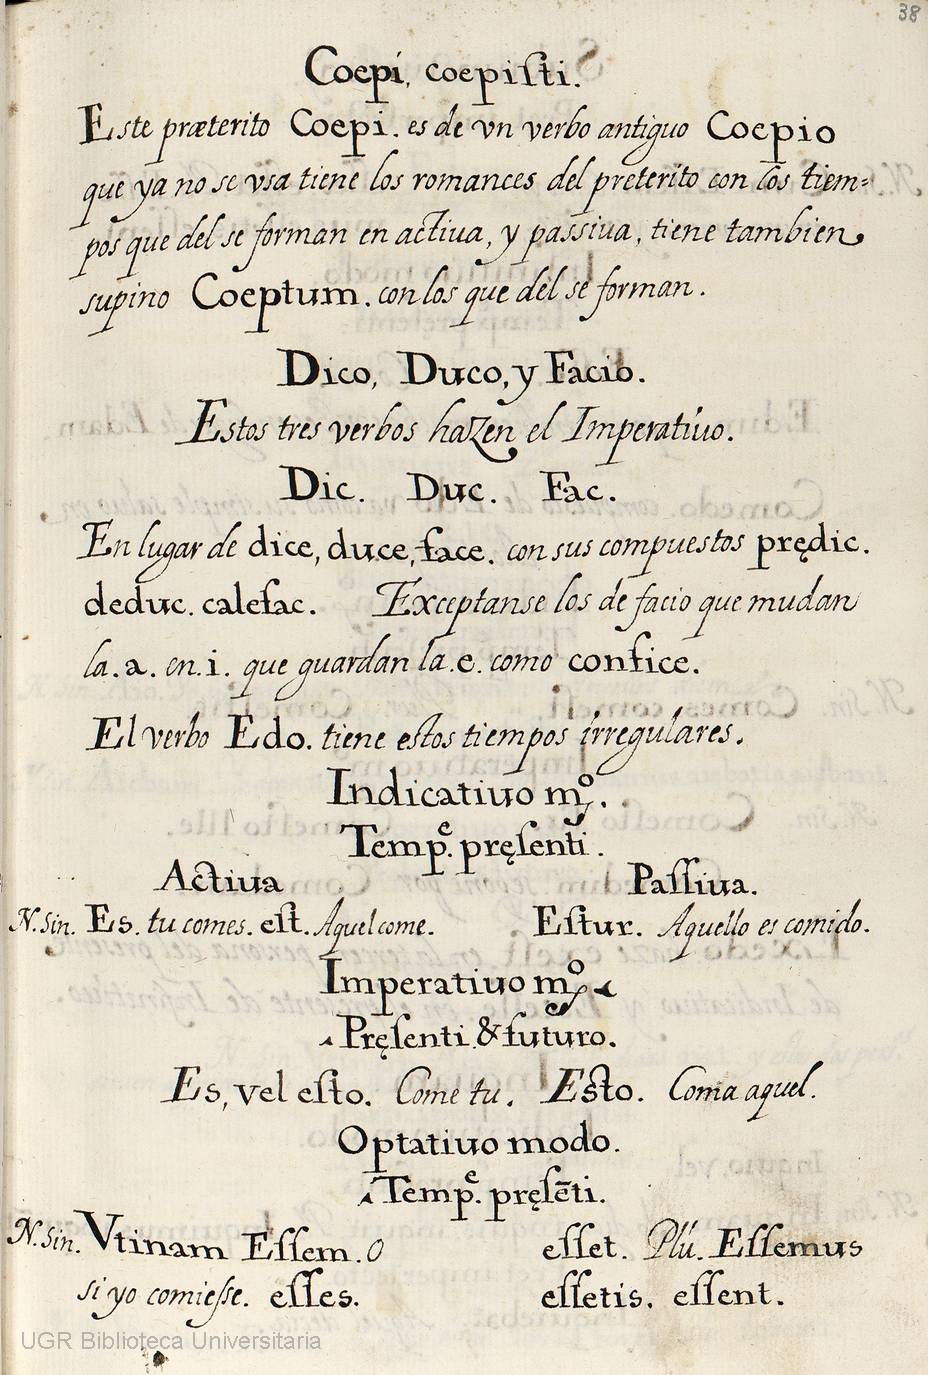 38
Coepi, coepisti.
Este præterito Coepi. es de vn verbo antiguo Coepio
que ya no se vsa tiene los romances del preterito con los tiem=
pos que del se forman en actiua, y passiua, tiene tambien
supino Coeptum. con los que del se forman.
Dico, Duco, y Facio.
Estos tres verbos hazen el Imperatiuo.
Dic. Duc. Fac.
En lugar de dice, duce, face. con sus compuestos prędic.
deduc. calefac. Exceptanse los de facio que mudan
la .a. en .i. que guardan la .e. como confice.
El verbo Edo. tiene estos tiempos irregulares.
Indicatiuo mº.
Tempᵉ. pręsenti.
Actiua Passiua.
N. Sin. Es. tu comes. est. Aquel come. Estur. Aquello es comido.
Imperatiuo mº
Pręsenti & futuro.
Es, vel esto. Come tu. Esto. Coma aquel.
Optatiuo modo.
Tempᵉ. pręsēti.
N. Sin. Vtinam Essem. O esset. Plú. Essemus
si yo comiesse. esses. essetis. essent.
UGR Biblioteca Universitaria